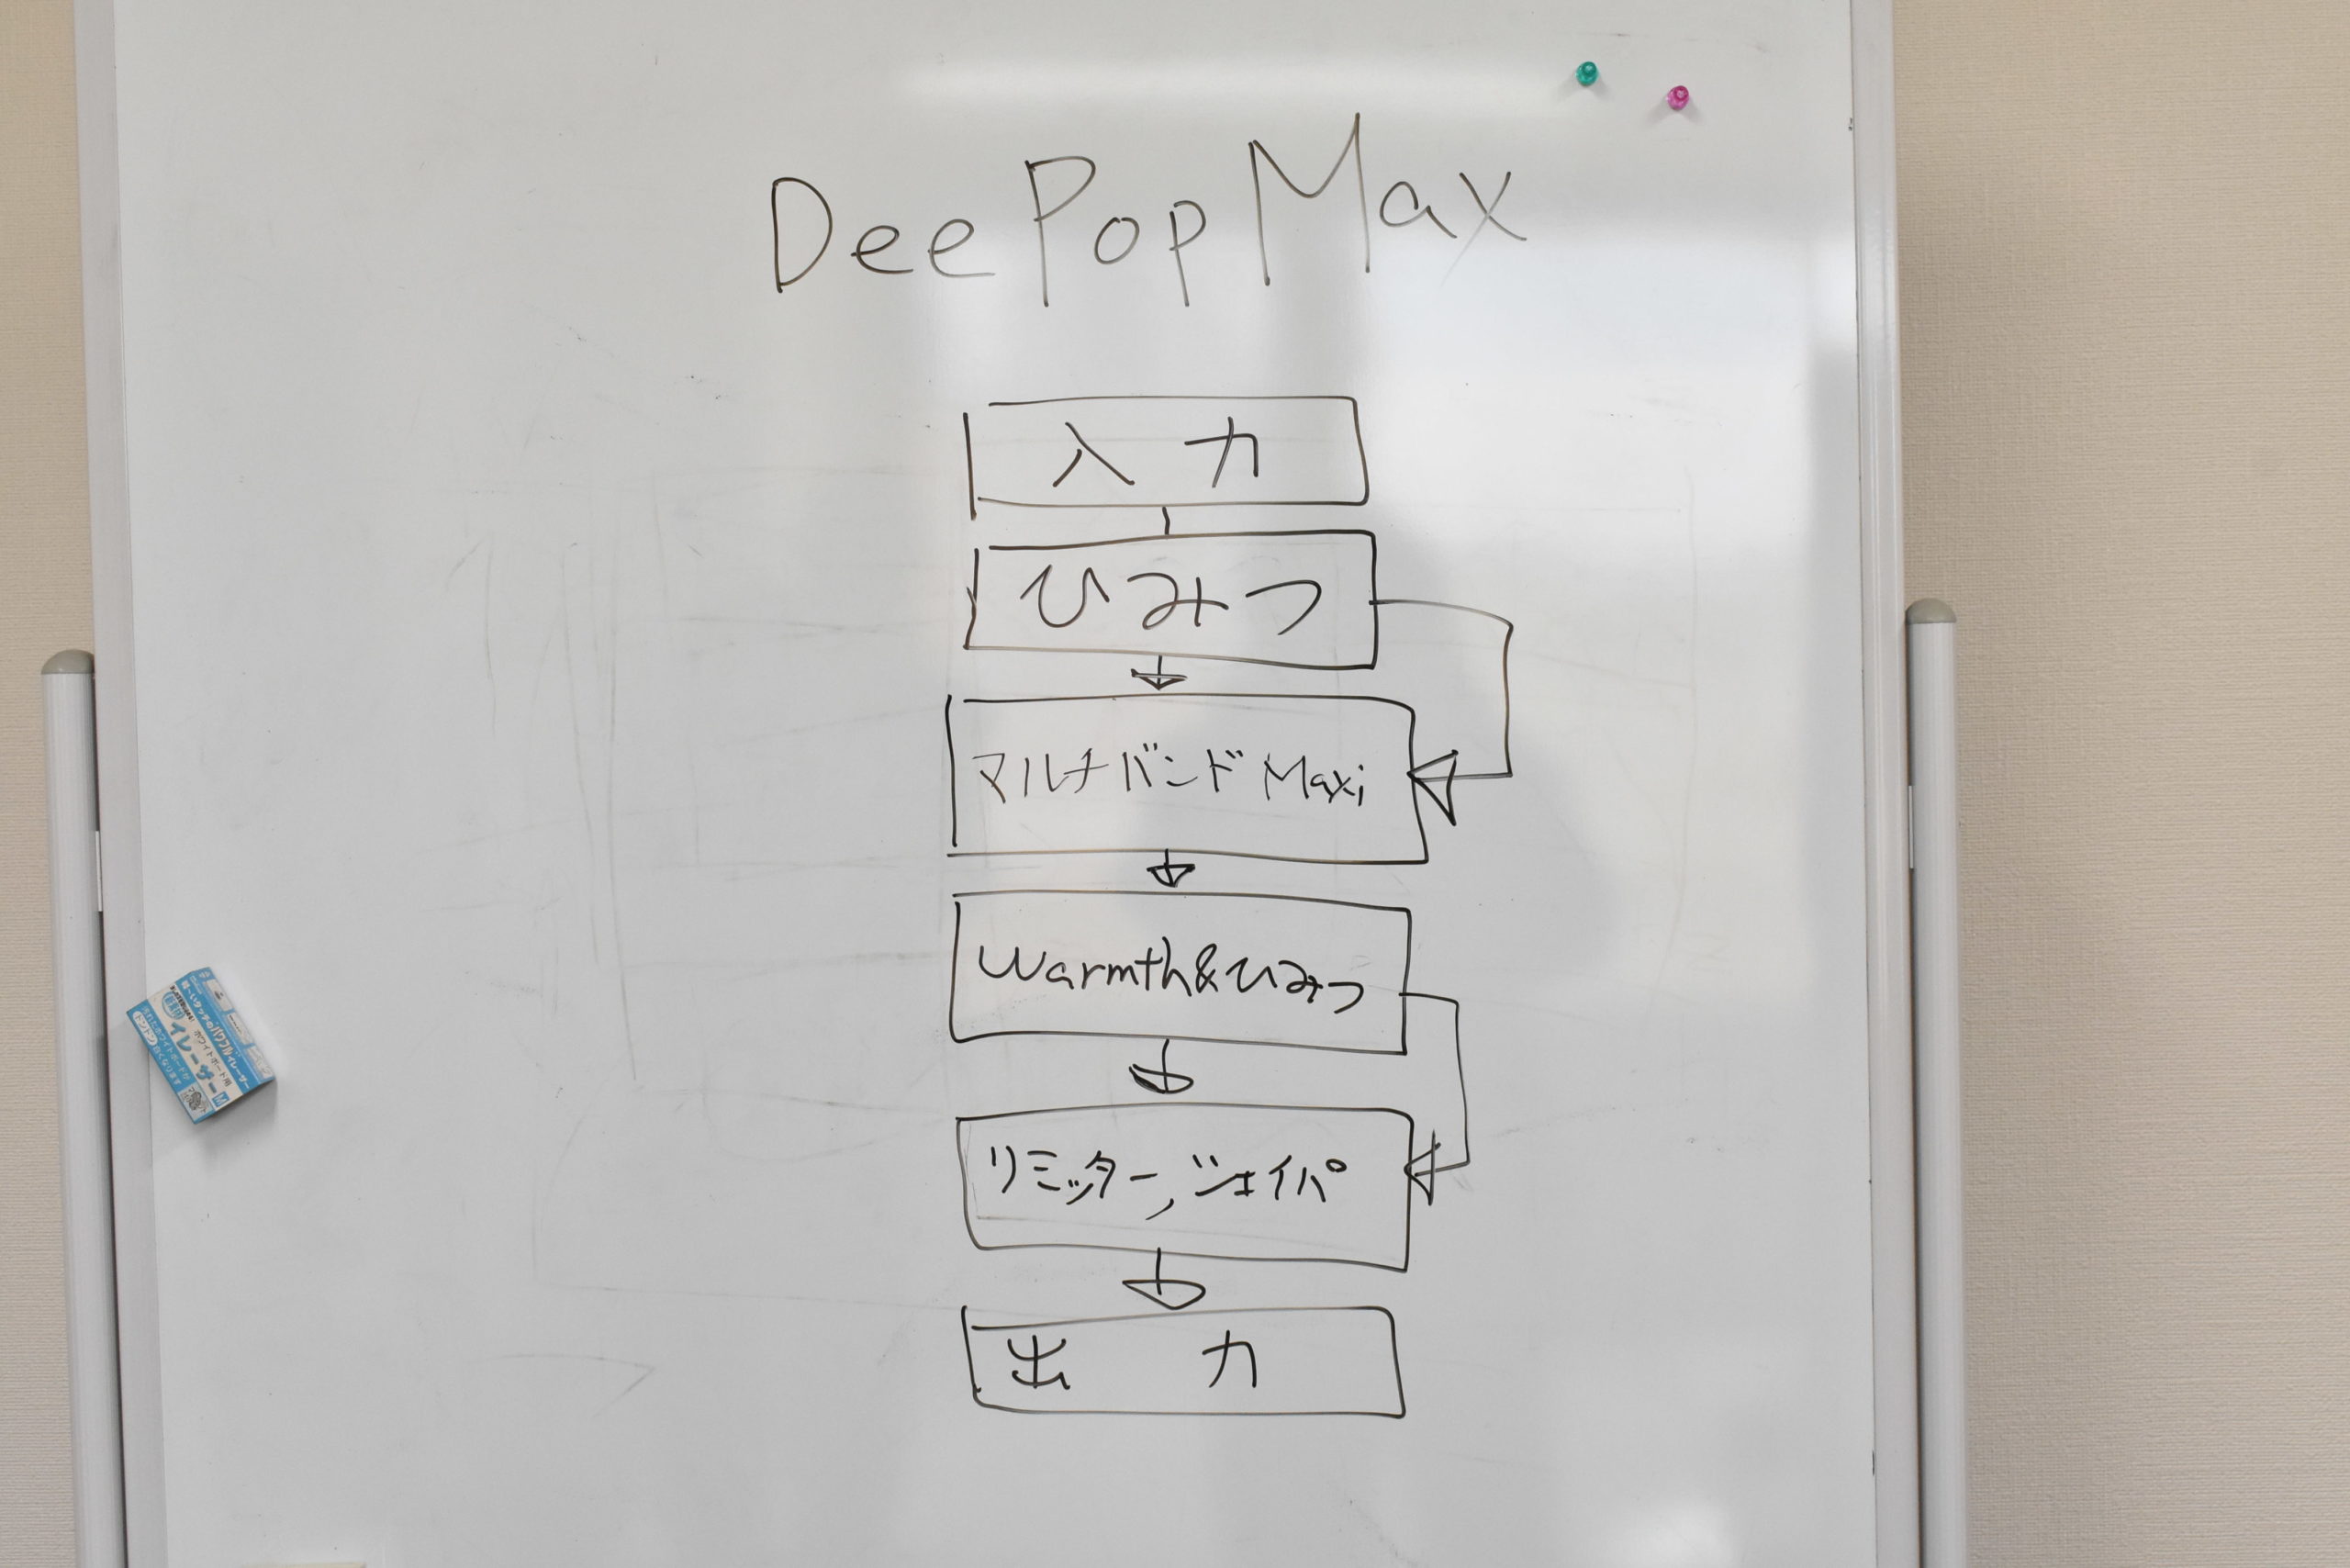 DeePopMax
入力
ひみつ
マルチバンドMaxi
Warmth&ひみつ
リミッター,シェイパ
出力
ホワイトボード用
イレーザー